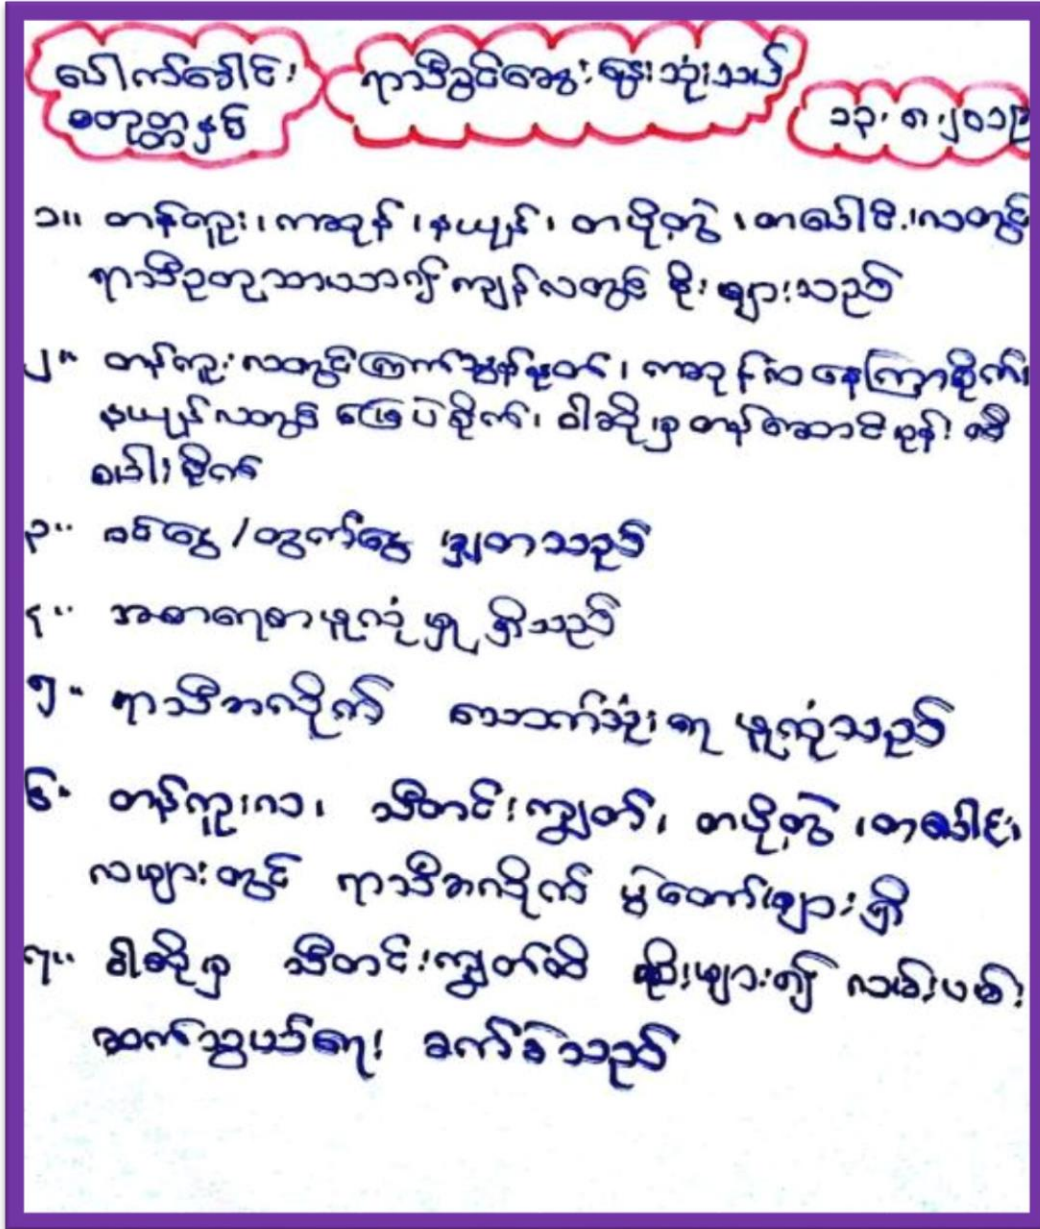 ပေါက်ခေါင်း
စတုတ္တနှစ်
ရာသီခွင်ဆွေးနွေးသုံးသပ်
၁၃.၈.၂၀၁၉
၁။ တန်ကူး၊ ကဆုန်၊ နယုန်၊ တပို့တွဲ၊ တပေါင်း၊လတွင်
ရာသီဥတုသာယာ၍ ကျန်လတွင် စိုးများသည်
၂။ တန်ကူးလတွင်ကြက်သွန်နုတ်၊ ကဆုန်လနေကြာစိုက်၊
နယုန်လတွင် မြေပဲစိုက်၊ ဝါဆိုမှတန်ဆောင်မုန်းထိ
စပါးစိုက်
၃။ ဝင်ငွေ/ထွက်ငွေ မျှတသည်
၄။ အစာရေစာဖူလုံမှု ရှိသည်
၅။ ရာသီအလိုက် သောက်သုံးရေ ဖူလုံသည်
၆။ တန်ကူးလ၊ သီတင်းကျွတ်၊ တပို့တွဲ၊ တပေါင်း၊
လများတွင် ရာသီအလိုက် ပွဲတော်များရှိ
၇။ ဝါဆိုမှ သီတင်းကျွတ်ထိ မိုးများ၍ လမ်းပမ်း
ဆက်သွယ်ရေး ခက်ခဲသည်